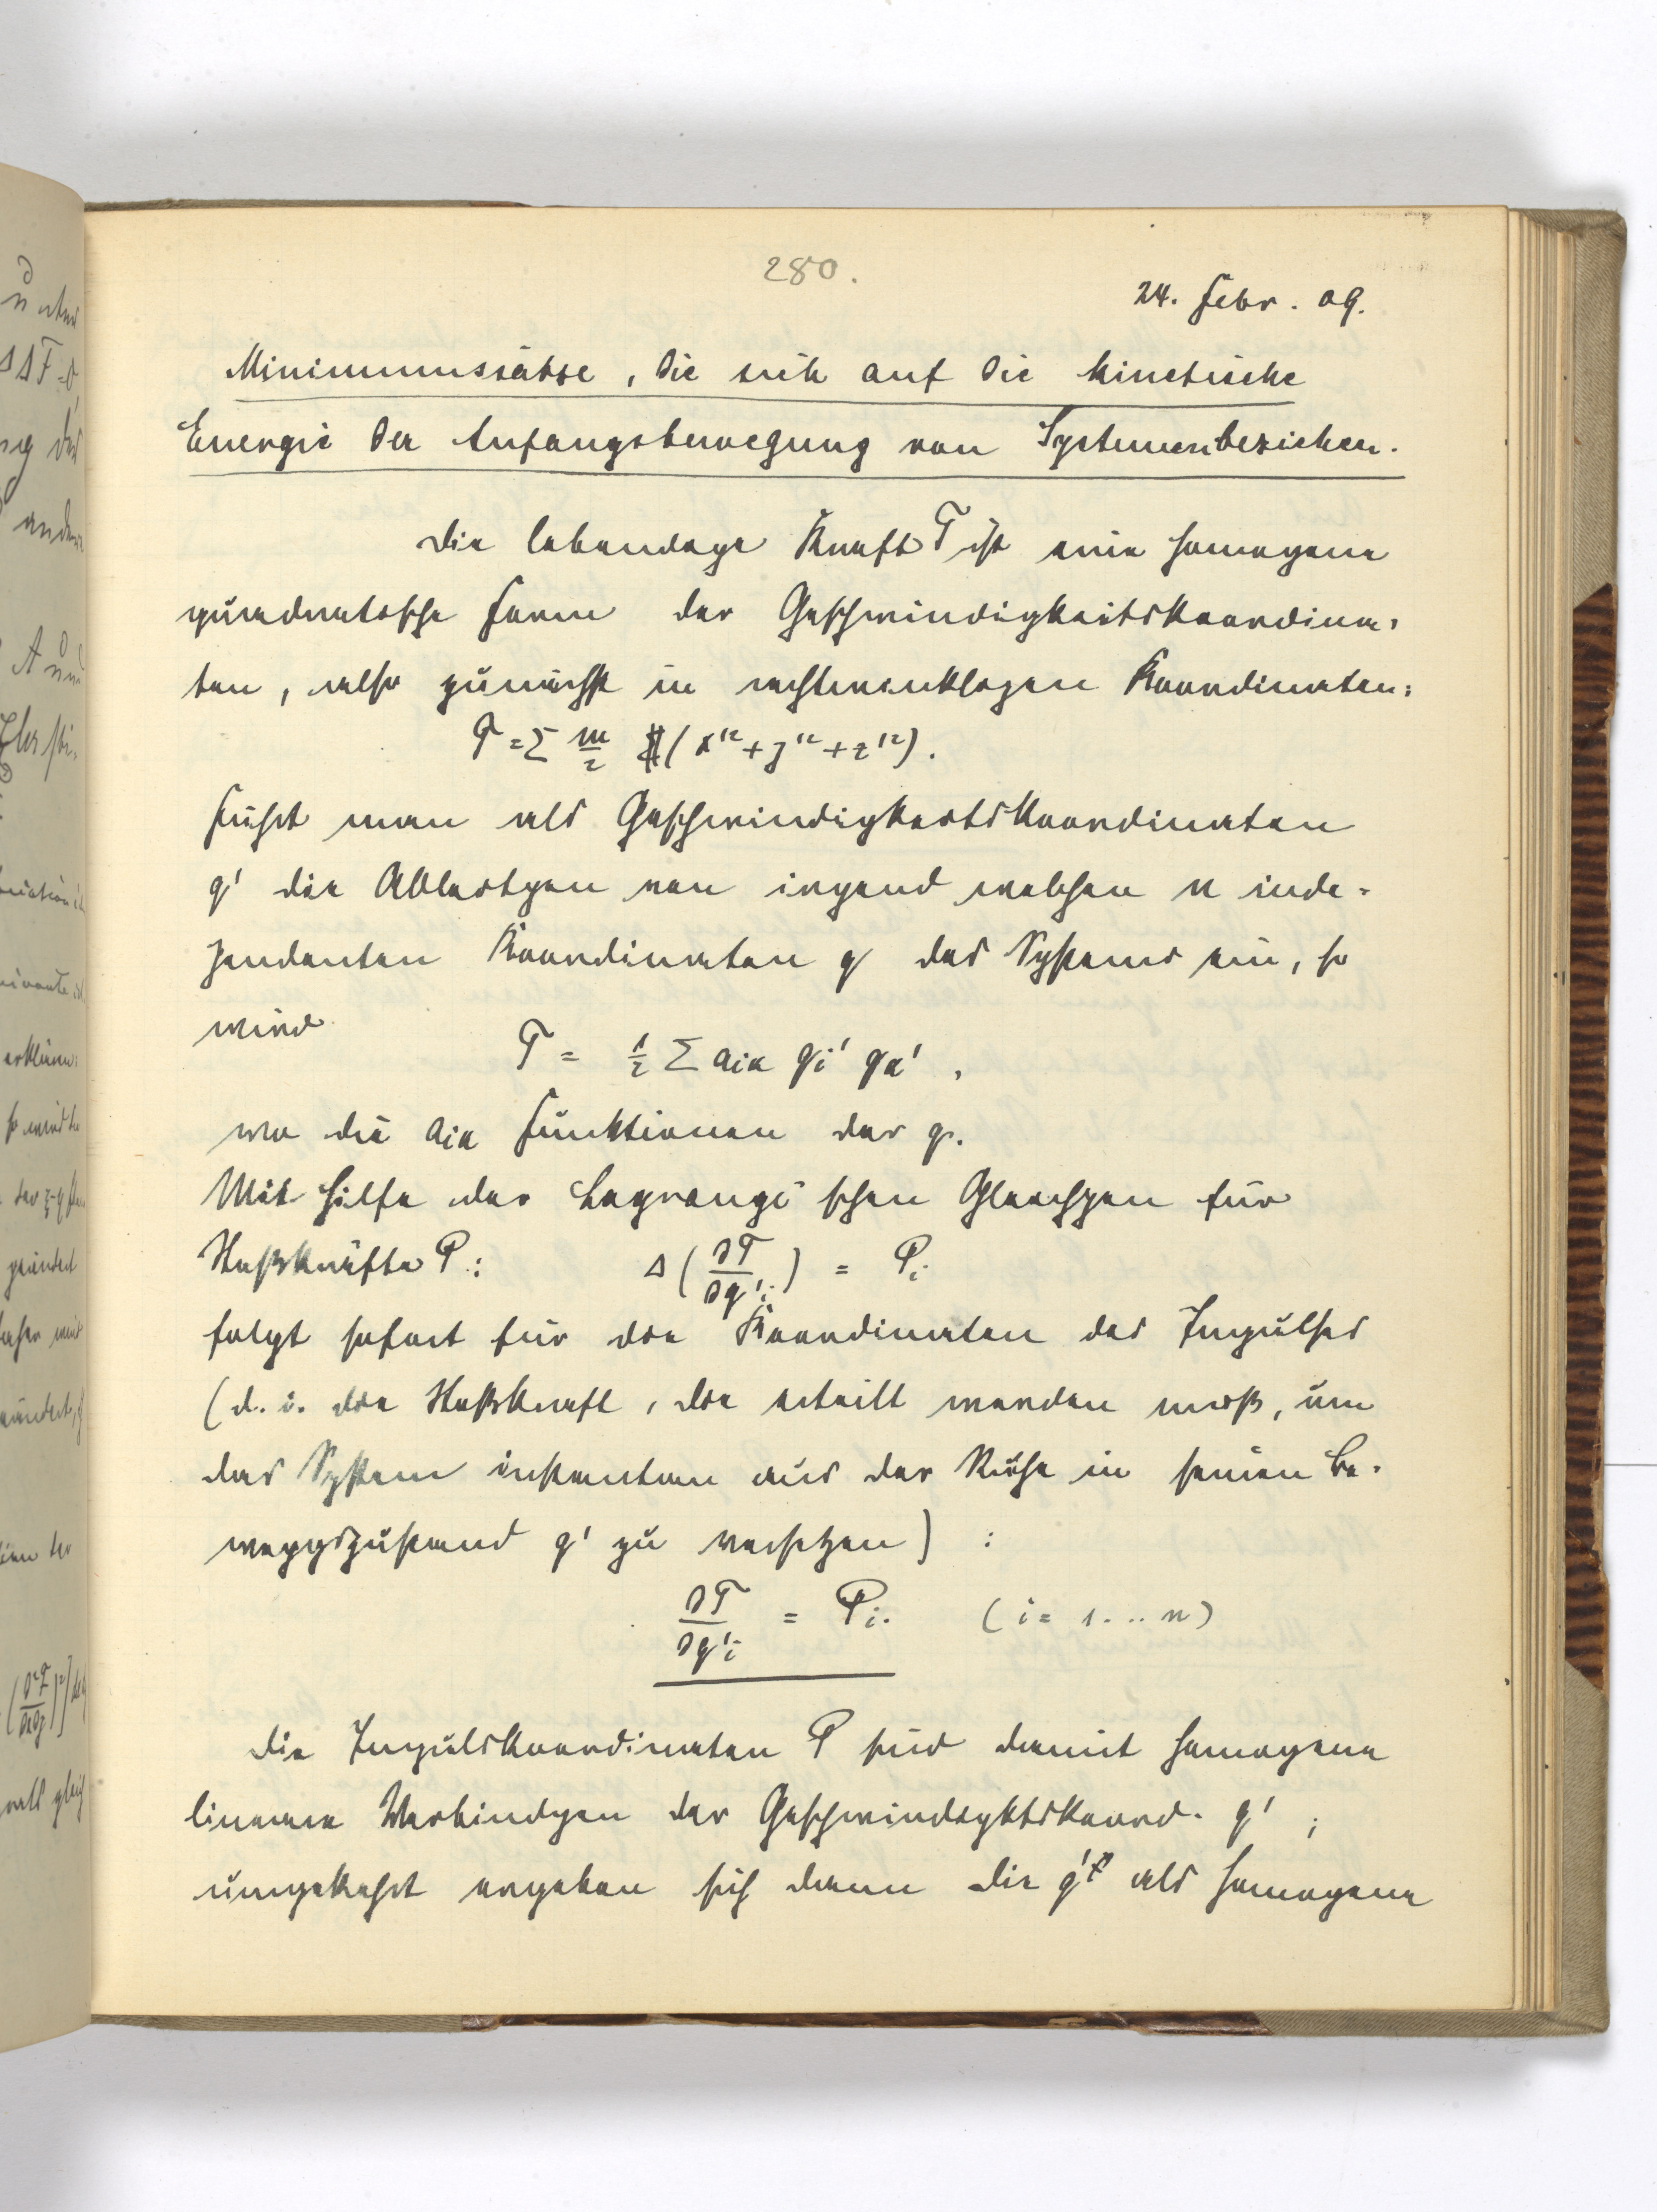 280.
24. Febr. 09.
Minimumssätze, die sich auf die kinetische
Energie der Anfangsbewegung von Systemen beziehen.
Die lebendige Kraft T ist eine homogene
quadratische Form der Geschwindigkeitskoordina-
ten, also zunächst in rechtwinkligen Koordinaten:
T = Σ m/2 (x'² + y'² + z'²).
Führt man als Geschwindigkeitskoordinaten
q' die Ableitgen von irgend welchen n inde-
pendenten Koordinaten q des Systems ein, so
wird
T = 1/2 Σ aᵢₖ qᵢ' qₖ',
wo die aᵢₖ Funktionen der q.
Mit Hilfe der Lagrange'schen Gleichgen für
Stoßkräfte P: Δ(∂T/∂q'ᵢ) = Pᵢ
folgt sofort für die Koordinaten des Impulses
(d. i. die Stoßkraft, die erteilt werden muß, um
das System instantan aus der Ruhe in seinen Be-
weggszustand q' zu versetzen) :
∂T/∂q'ᵢ = Pᵢ. (i = 1...n)
Die Impulskoordinaten P sind damit homogene
lineare Verbindgen der Geschwindigktskoord. q' ;
umgekehrt ergeben sich dann die q' als homogene